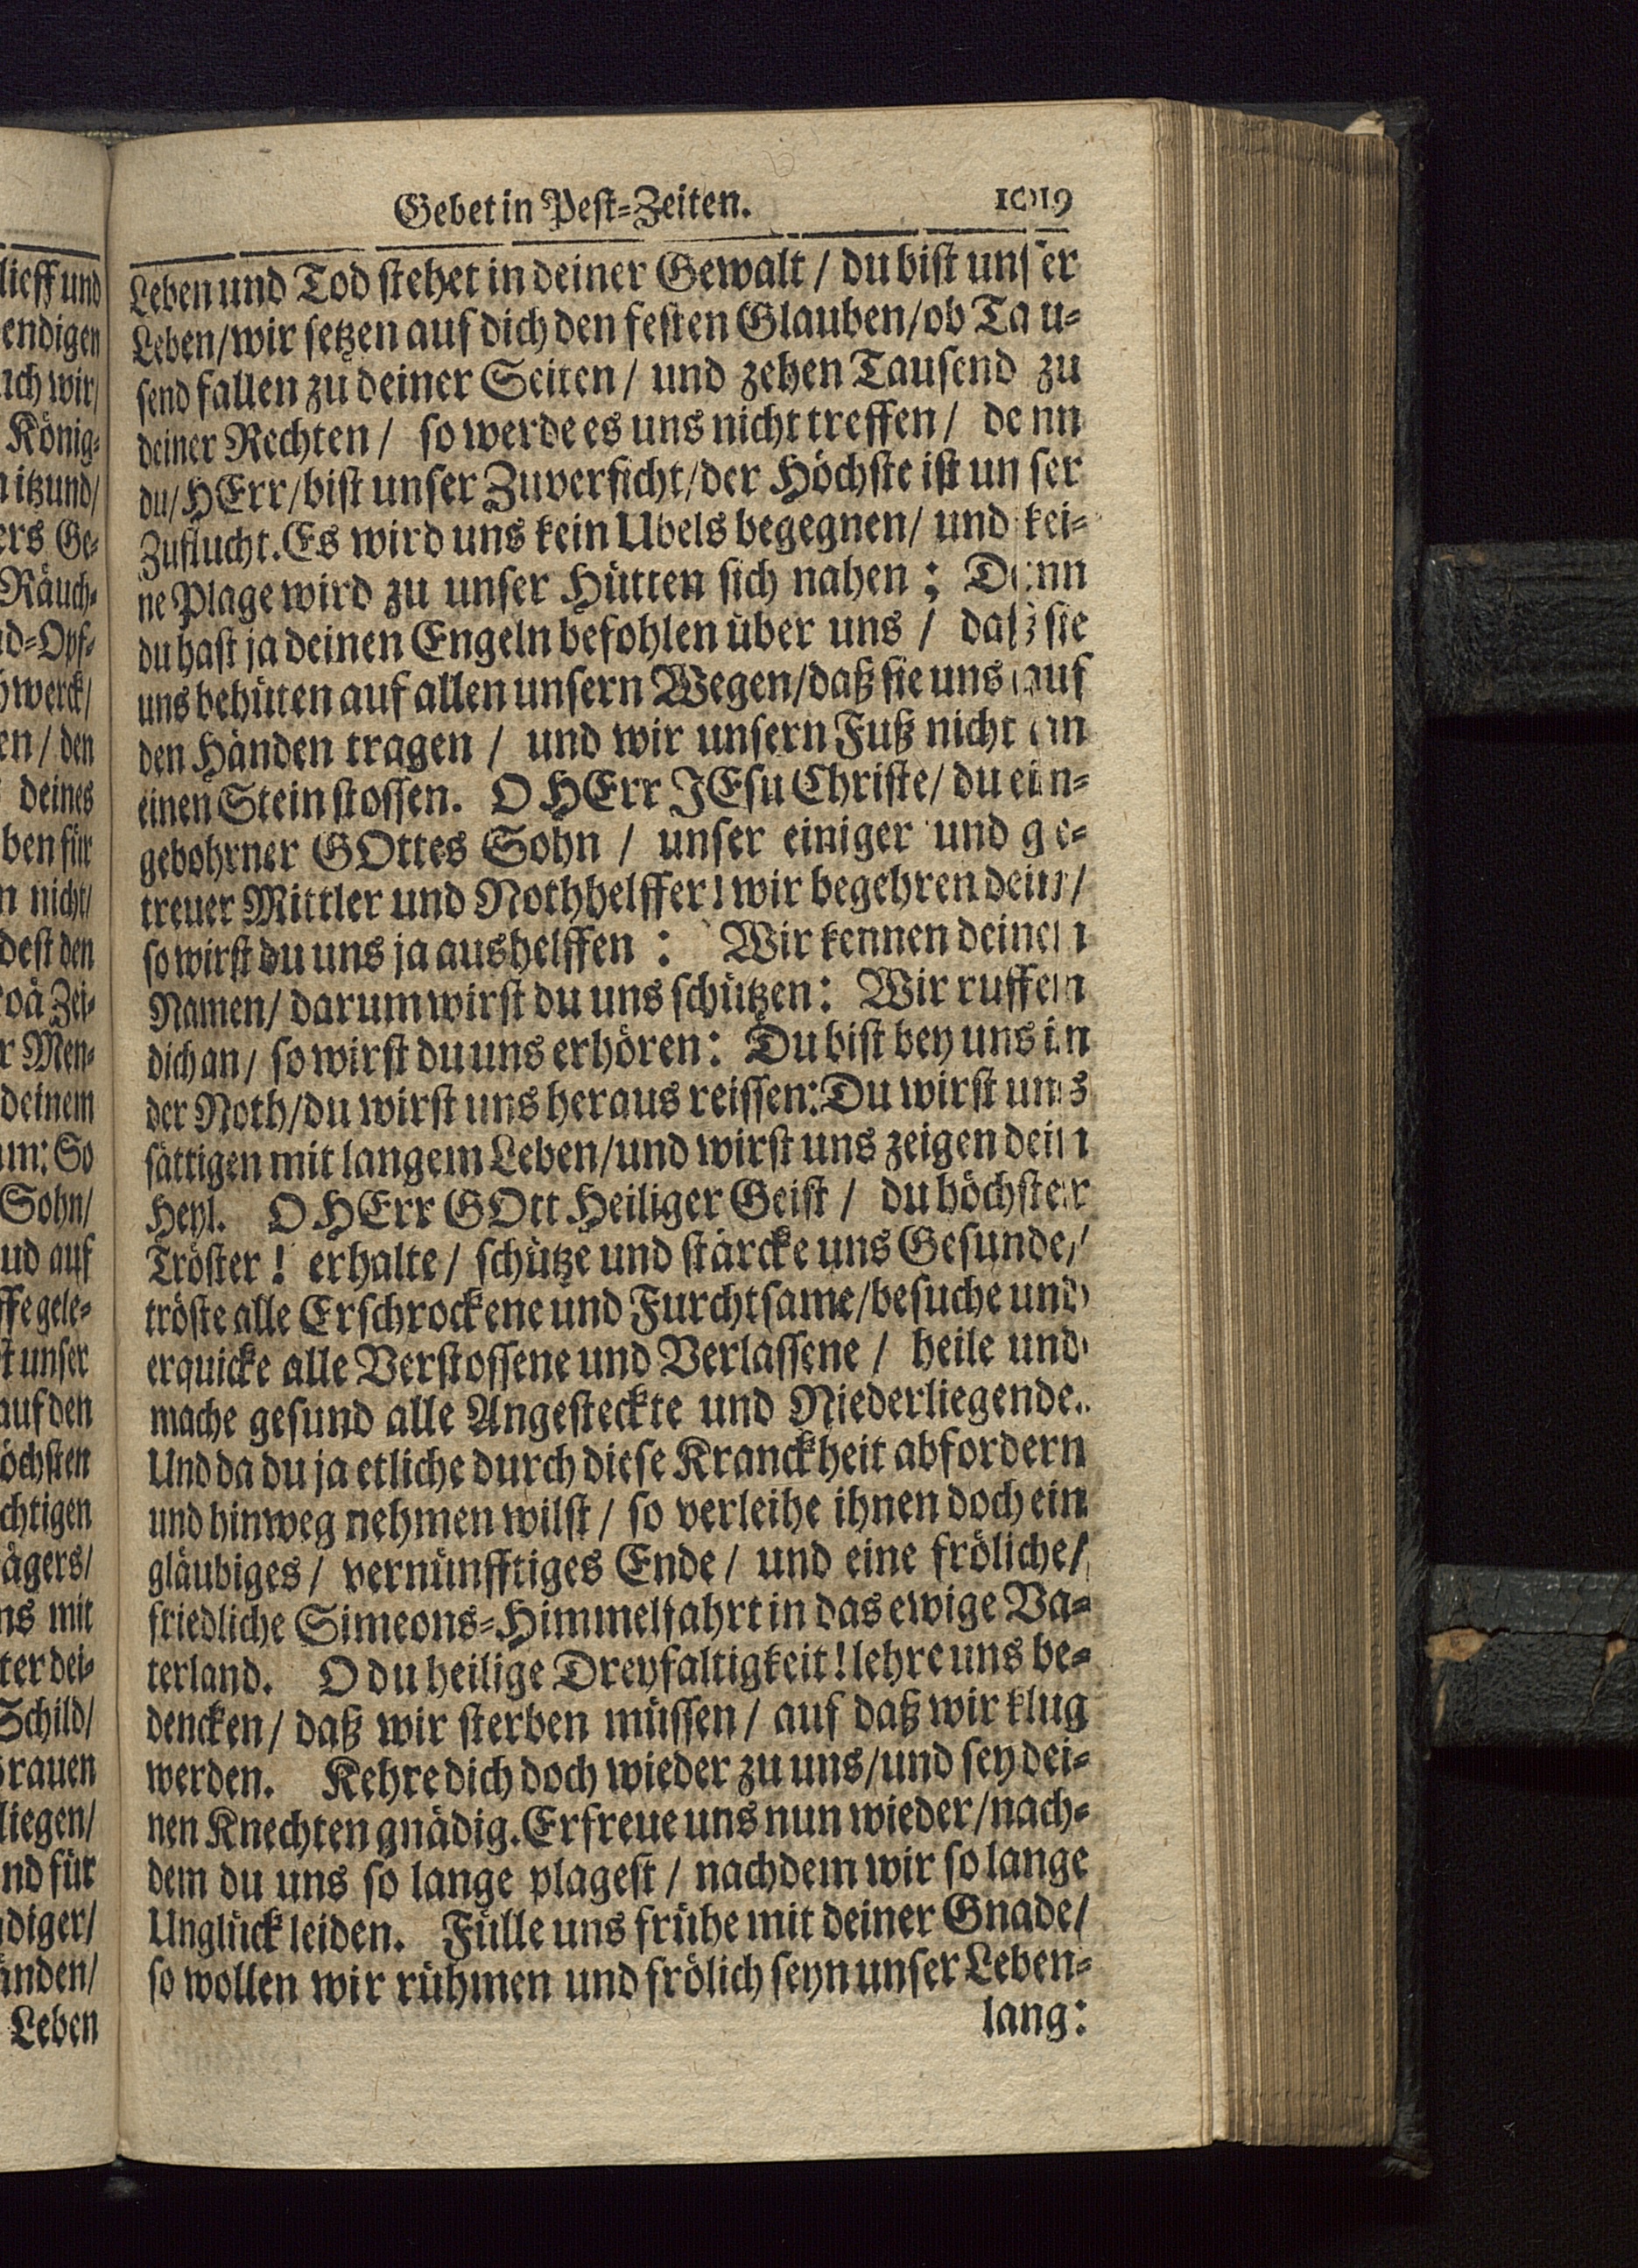 Gebet in Pest=Zeiten. 1019
Leben und Tod stehet in deiner Gewalt / du bist unser
Leben/wir setzen auf dich den festen Glauben/ob Tau=
send fallen zu deiner Seiten / und zehen Tausend zu
deiner Rechten / so werde es uns nicht treffen / denn
du/HErr/bist unser Zuversicht/der Höchste ist unser
Zuflucht. Es wird uns kein Ubels begegnen/ und kei=
ne Plage wird zu unser Hütten sich nahen; Denn
du hast ja deinen Engeln befohlen über uns / daß sie
uns behüten auf allen unsern Wegen/daß sie uns auf
den Händen tragen / und wir unsern Fuß nicht an
einen Stein stossen. O HErr JEsu Christe/ du ein=
gebohrner GOttes Sohn / unser einiger und ge=
treuer Mittler und Nothhelffer! wir begehren dein/
so wirst du uns ja aushelffen: Wir kennen deinen
Namen/ darum wirst du uns schützen: Wir ruffen
dich an/ so wirst du uns erhören: Du bist bey uns in
der Noth/du wirst uns heraus reissen: Du wirst uns
sättigen mit langem Leben/und wirst uns zeigen dein
Heyl. O HErr GOtt Heiliger Geist / du höchster
Tröster! erhalte/ schütze und stärcke uns Gesunde/
tröste alle Erschrockene und Furchtsame/besuche und
erquicke alle Verstossene und Verlassene / heile und
mache gesund alle Angesteckte und Niederliegende.
Und da du ja etliche durch diese Kranckheit abfordern
und hinweg nehmen wilst / so verleihe ihnen doch ein
gläubiges / vernünfftiges Ende / und eine fröliche/
friedliche Simeons=Himmelfahrt in das ewige Va=
terland. O du heilige Dreyfaltigkeit! lehre uns be=
dencken / daß wir sterben müssen / auf daß wir klug
werden. Kehre dich doch wieder zu uns/und sey dei=
nen Knechten gnädig. Erfreue uns nun wieder/nach=
dem du uns so lange plagest / nachdem wir so lange
Unglück leiden. Fülle uns frühe mit deiner Gnade/
so wollen wir rühmen und frölich seyn unser Leben=
lang: